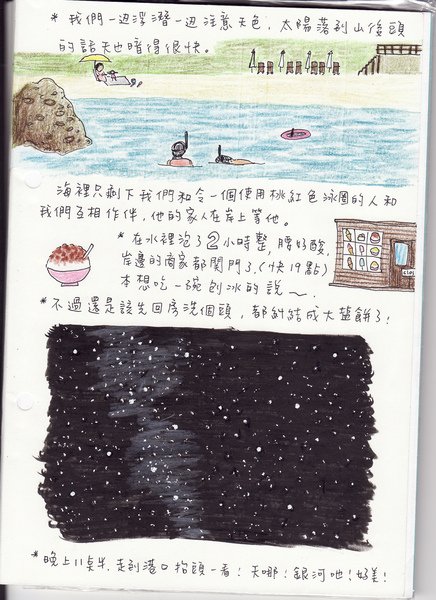 *我們一边浮潛一边注意天色，太陽落到山後頭
的話天也暗得很快。
海裡只剩下我們和令一個使用桃紅色泳圈的人和
我們互相作伴，他的家人在岸上等他。
*在水裡泡了2小時整，腰好酸，
岸邊的商家都關門了(快19點)
本想吃一碗刨冰的說～.
*不過還是該先回房洗個頭，都糾結成大盤餅了!
*晚上11点半，走到港口抬頭一看！天哪！銀河吔！好美！